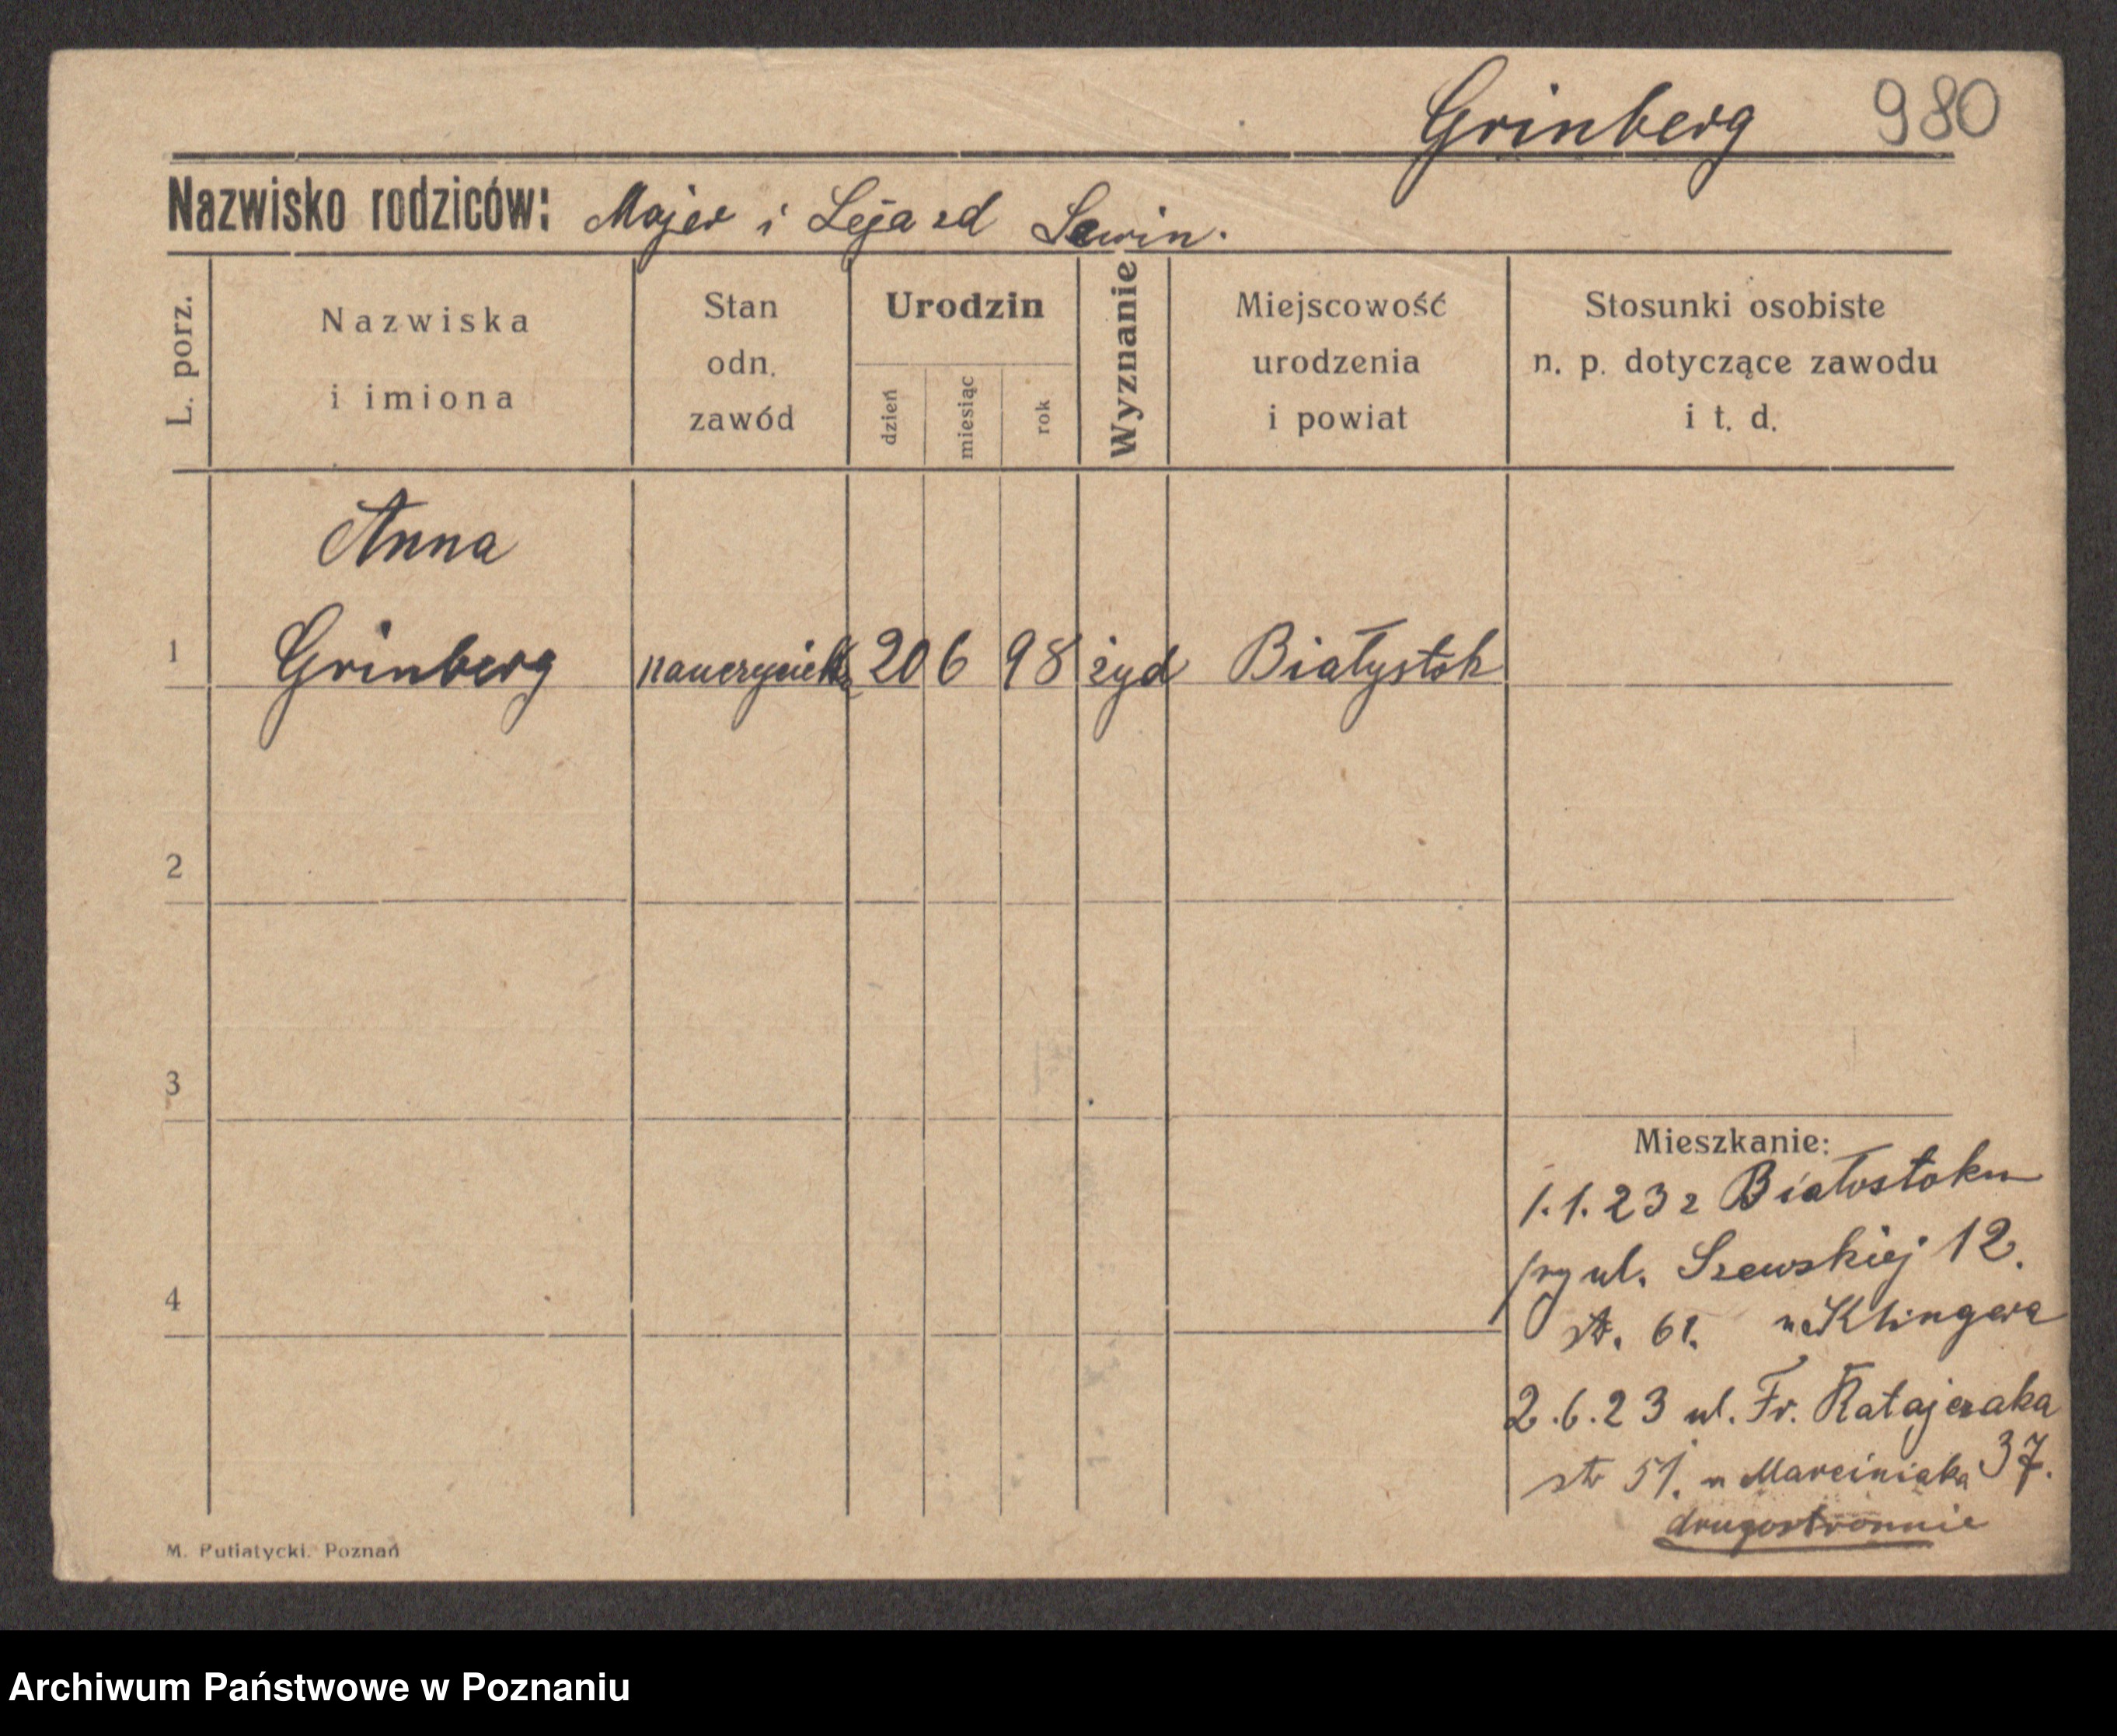 Grinberg 980
Nazwisko rodziców: Majer i Leja zd Lewin.
L. porz.
Nazwiska
i imiona
Stan
odn.
zawód
Urodzin
dzień
miesiąc
rok
Wyznanie
Miejscowość
urodzenia
i powiat
Stosunki osobiste
n. p. dotyczące zawodu
i t. d.
Anna
1 Grinberg nauczycielka 20 6 98 żyd Białystok
2
3
4
Mieszkanie:
1.1.23 z Białostoku
ul. Szewskiej 12.
st. 61. u Klingera
2.6.23 ul. Fr. Ratajczaka
str 51. u Marciniaka 37.
drugostronnie
M. Putiatycki. Poznań
Archiwum Państwowe w Poznaniu